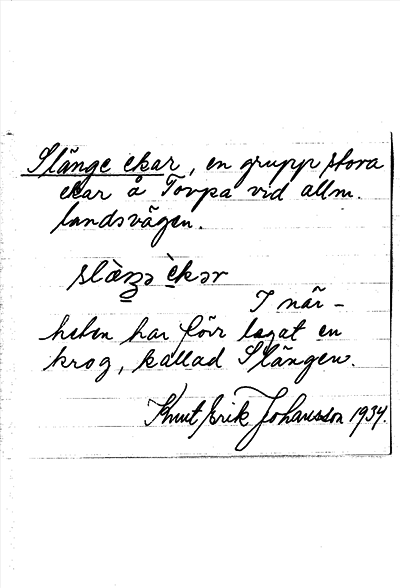 Slänge ekar, en grupp stora
ekar å Torpa vid allm.
landsvägen.
slæ̀ŋə è̱kər
I när-
heten har förr legat en
krog, kallad Slängen.
Knut Erik Johansson 1934.